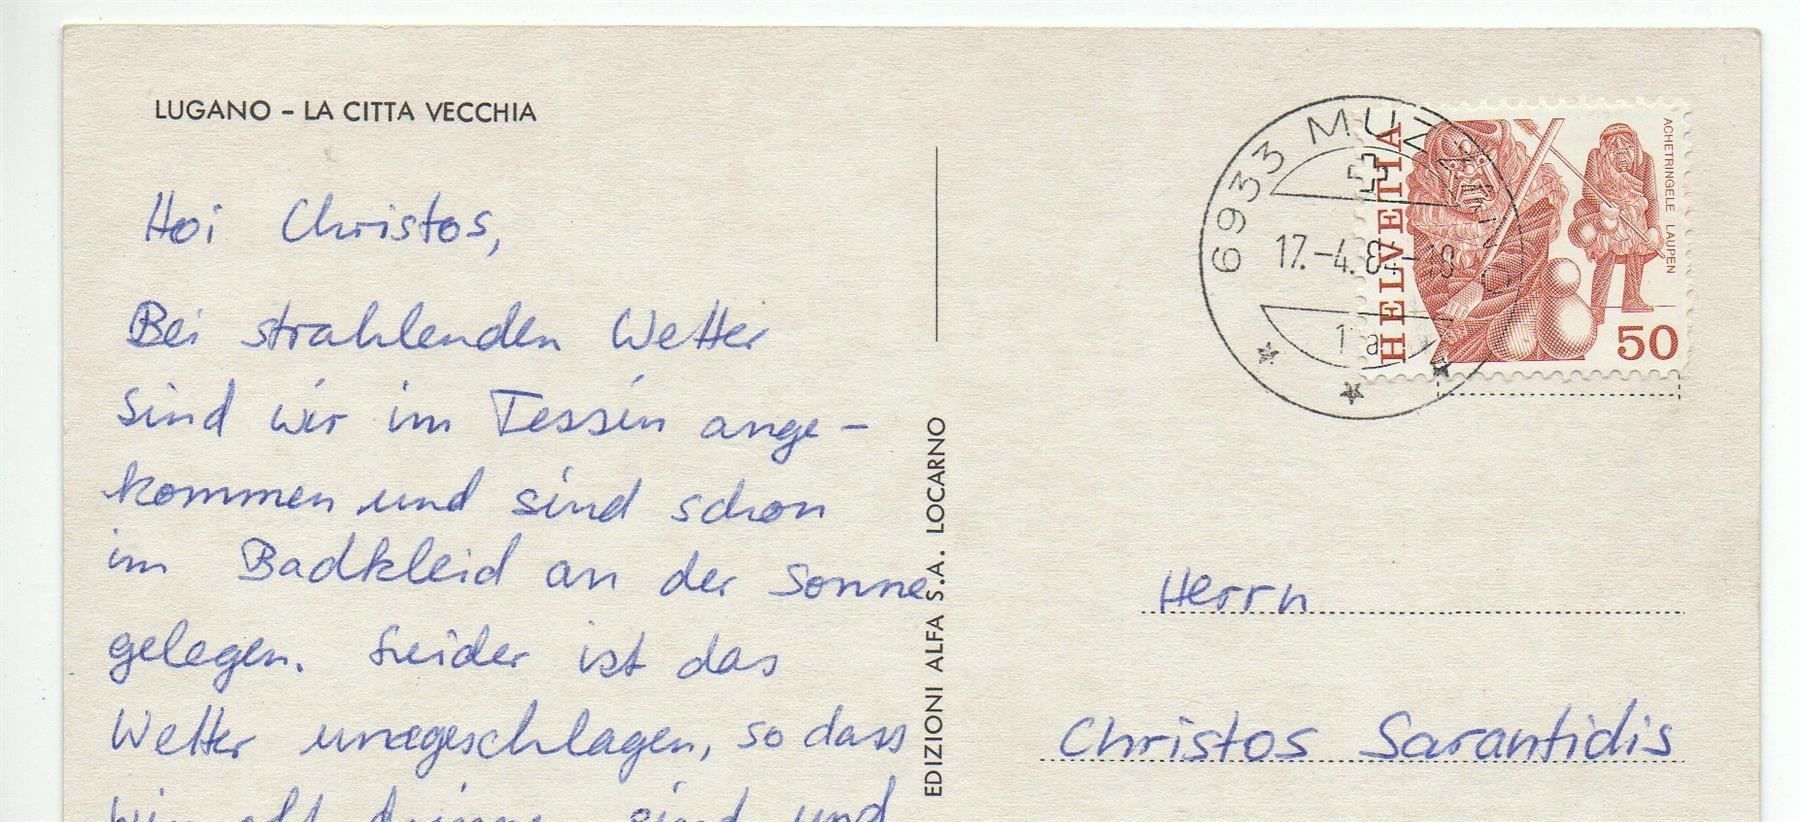 LUGANO – LA CITTA VECCHIA
Hoi Christos,
Bei strahlenden Wetter
sind wir im Tessin ange-
kommen und sind schon
im Badkleid an der Sonne
gelegen. Leider ist das
Wetter umgeschlagen, so dass
wir oft drinnen sind und
EDIZIONI ALFA S.A. LOCARNO
6933 MUZZANO
17.-4.8
HELVETIA
ACHETRINGELE LAUPEN
50
Herrn
Christos Sarantidis